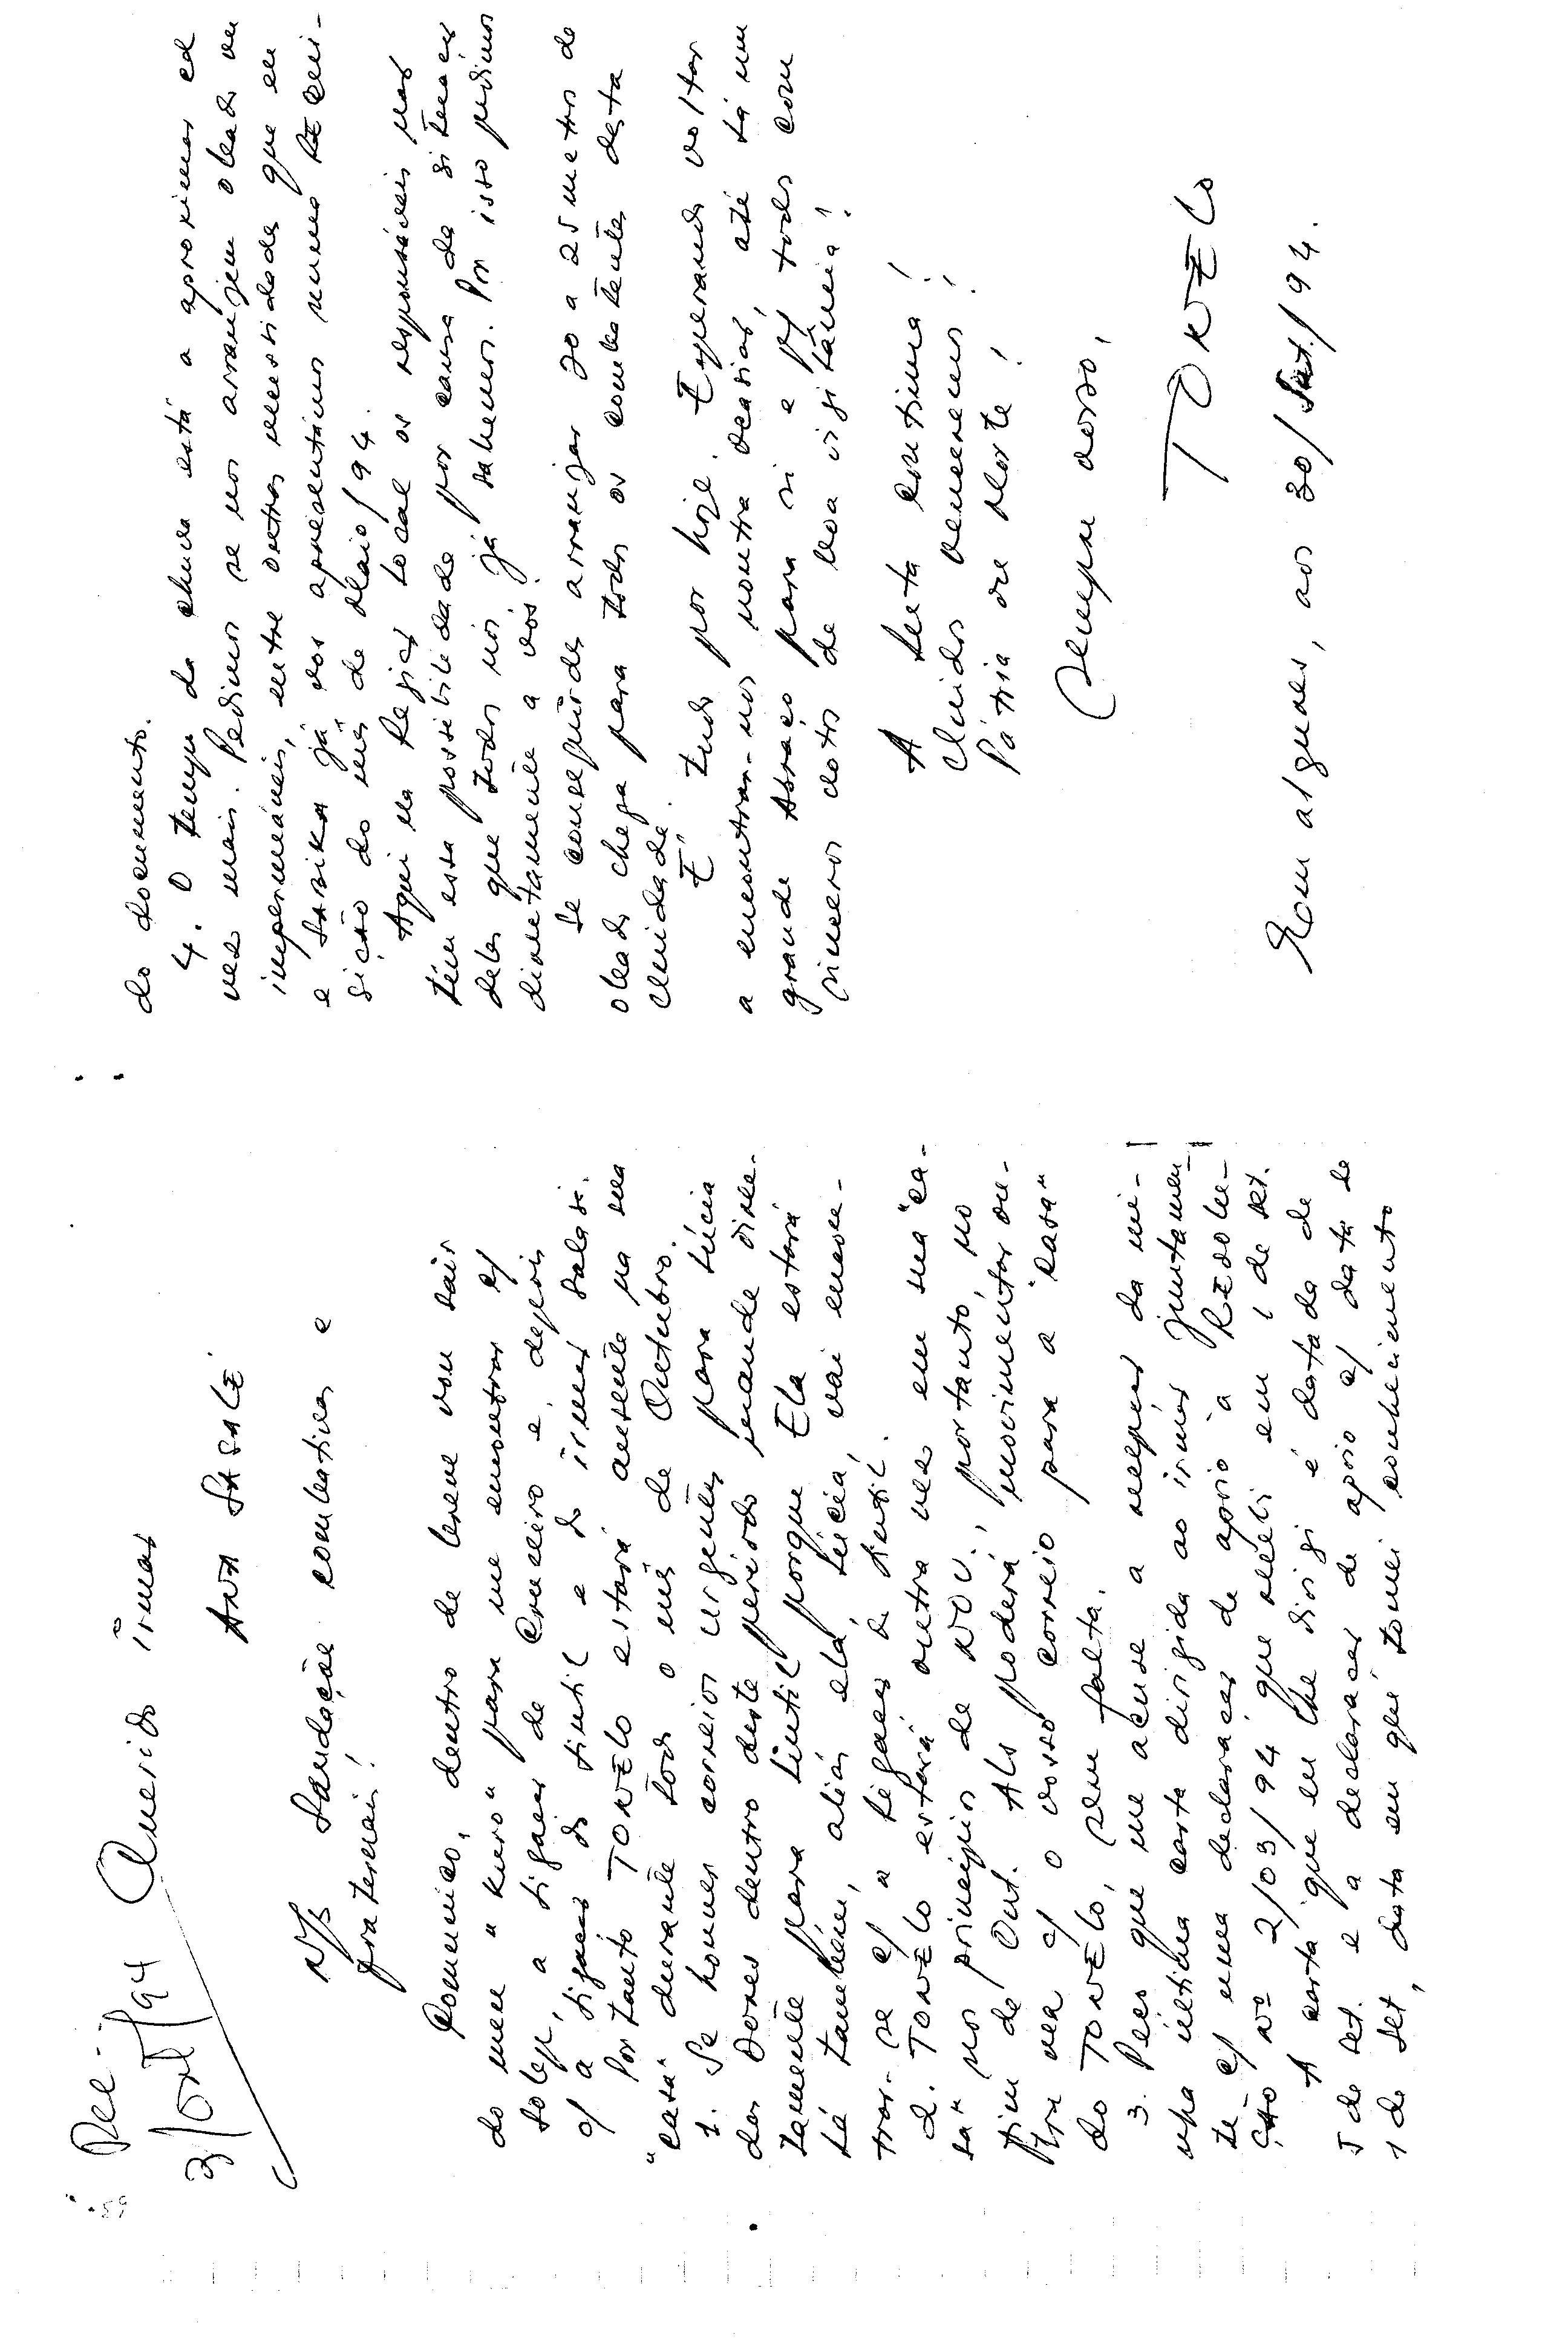 Rec.
3/out/94
Querido irmão
ANA SASALÉ
N/s Saudações combativas e
fraternais!
Comunico, dentro de breve vou sair
do meu "kuro" para me encontrar c/
Solep, a ligação de Cruzeiro e, depois
c/ a ligação do Lintil e do irmão Salasi.
Portanto TONELO estará ausente na sua
"casa" durante todo o mês de Outubro.
1. Se houver correios urgentes para Lúcia
das Dores dentro deste período mande direc-
tamente para Lintil porque Ela estará
lá também, aliás ela, Lúcia, vai encon-
trar-se c/ a ligação de Lintil.
2. TONELO estará outra vez em sua "ca-
sa" nos princípios de NOV., portanto, no
fim de Out. Als poderá movimentar ou-
tra vez c/ o vosso correio para a "casa"
do TONELO, sem falta.
3. Peço que me acuse a recepção da mi-
nha última carta dirigida ao irmão juntamen-
te c/ uma declaração de apoio à RESOLU-
ÇÃO Nº 2/03/94 que recebi em 1 de set.
A carta que eu lhe dirigi é datada de
5 de set. e a declaração de apoio c/ data de
1 de set, data em que tomei conhecimento
do documento.
4. O tempo da chuva está a aproximar cada
vez mais. Pedimos se nos arranjem oleado ou
impermeáveis, entre outras necessidades que eu
e SABIKA já vos apresentámos numa REQUI-
SIÇÃO do mês de Maio/94.
Aqui na Região local os responsáveis não
têm essa possibilidade por causa da situação
deles que todos nós já sabemos. Por isso pedimos
directamente a vós!
Se conseguirdes arranjar 20 a 25 metros de
oleado chega para todos os combatentes desta
Unidade.
É tudo por hoje. Esperando voltar
a encontrar-nos noutra ocasião, até lá um
grande Abraço para si e p/ todos com
sinceros votos de boa vigilância!
A Luta continua!
Unidos venceremos!!
Pátria ou Morte!
Sempre vosso,
TONELO
Em algures, aos 30/Set./94.